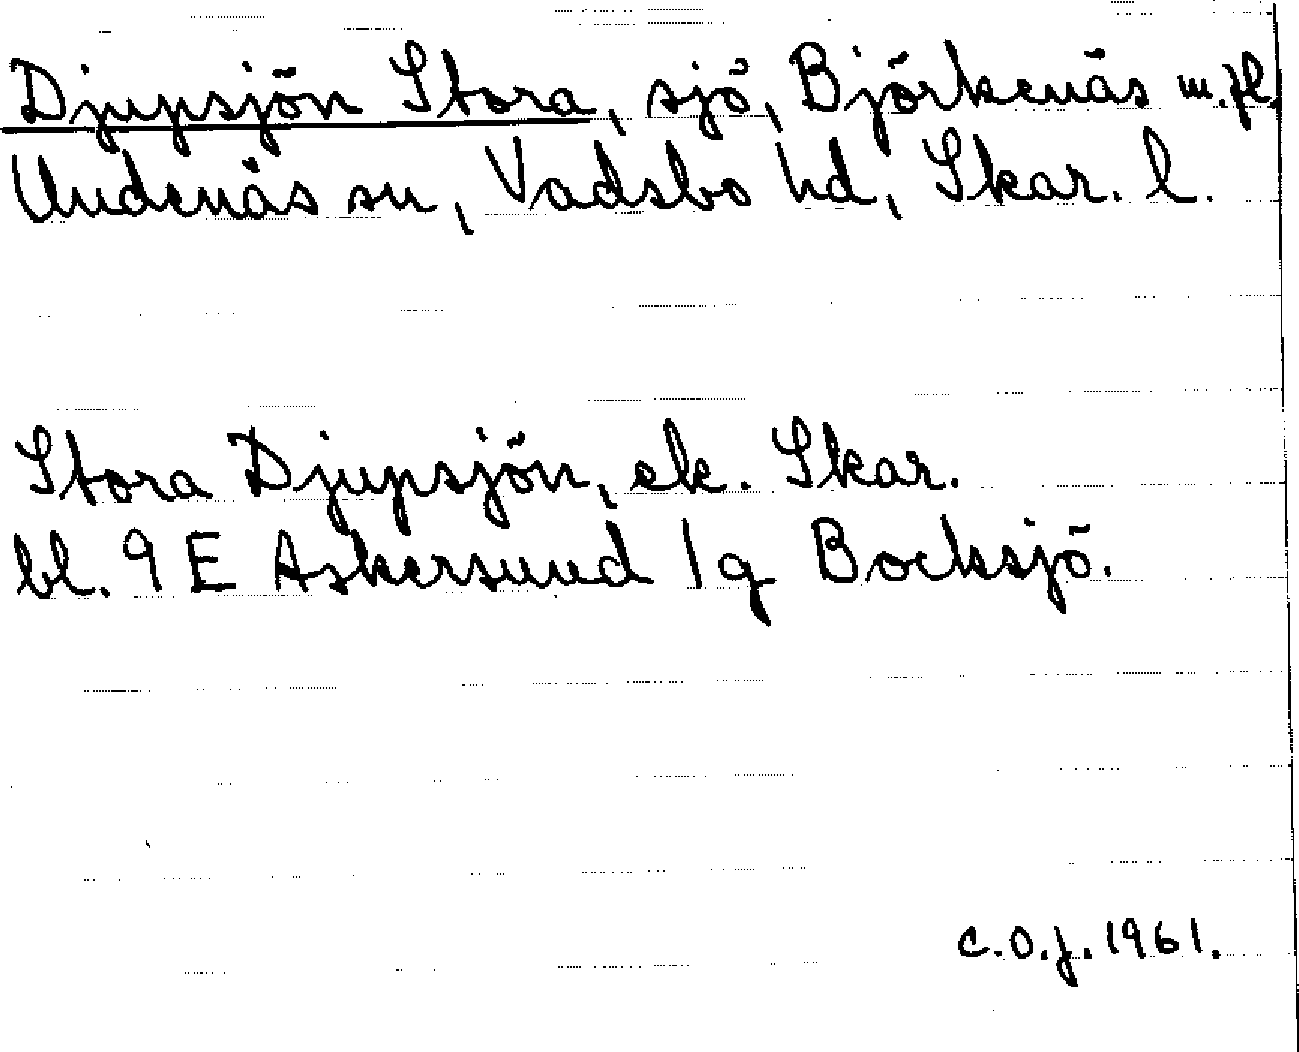 Djupsjön Stora, sjö, Björkenäs m.fl.
Undenäs sn, Vadsbo hd, Skar. l.
Stora Djupsjön, ek. Skar.
bl. 9 E Askersund 1g Bocksjö.
C.O.J. 1961.